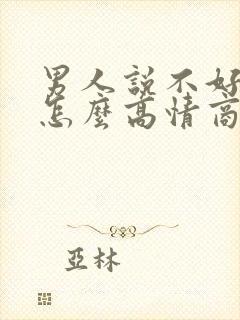 男人說不好
怎麼高情商
亞林